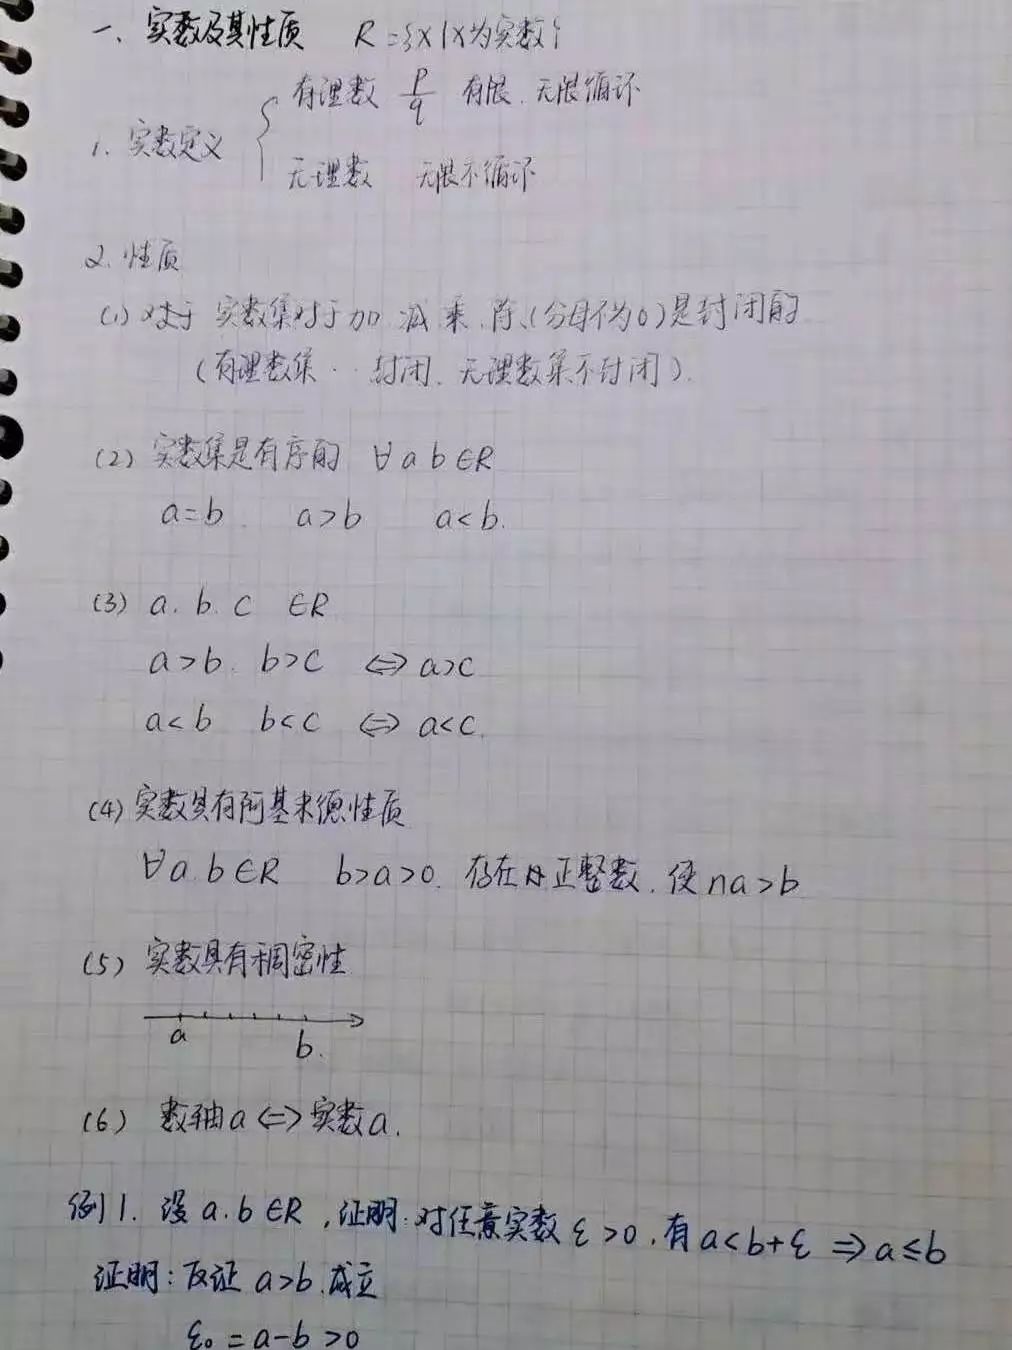 一、实数及其性质 R={x|x为实数}
有理数 p/q 有限.无限循环
1.实数定义
无理数 无限不循环
2.性质
(1)对于实数集对于加.减乘.除.(分母不为0)是封闭的
(有理数集··封闭.无理数集不封闭).
(2)实数集是有序的 ∀a b∈R
a=b. a>b a<b.
(3) a.b.c ∈R
a>b. b>c ⇔ a>c
a<b b<c ⇔ a<c.
(4)实数具有阿基米德性质
∀a.b∈R b>a>0.存在正整数.使na>b
(5)实数具有稠密性
a b.
(6)数轴a⇔实数a.
例1.设a.b∈R,证明:对任意实数ε>0.有a<b+ε⇒a≤b
证明:反证a>b.成立
ε₀=a-b>0